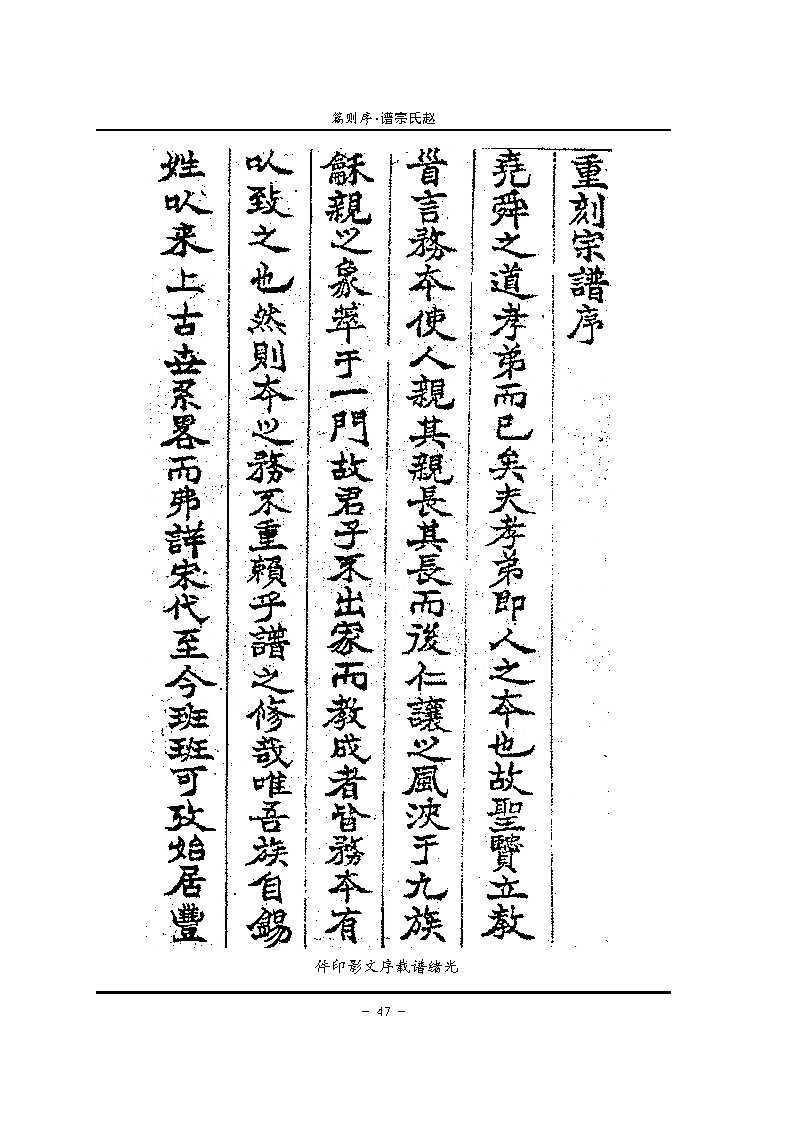 赵氏宗谱·序则篇
重刻宗譜序
堯舜之道孝弟而已矣夫孝弟即人之本也故聖賢立教
皆言務本使人親其親長其長而後仁讓之風浹于九族
龢親之象萃于一門故君子不出家而教成者皆務本有
以致之也然則本之務不重賴乎譜之修哉唯吾族自錫
姓以来上古世系畧而弗詳宋代至今班班可攷始居豐
光绪谱载序文影印件
- 47 -